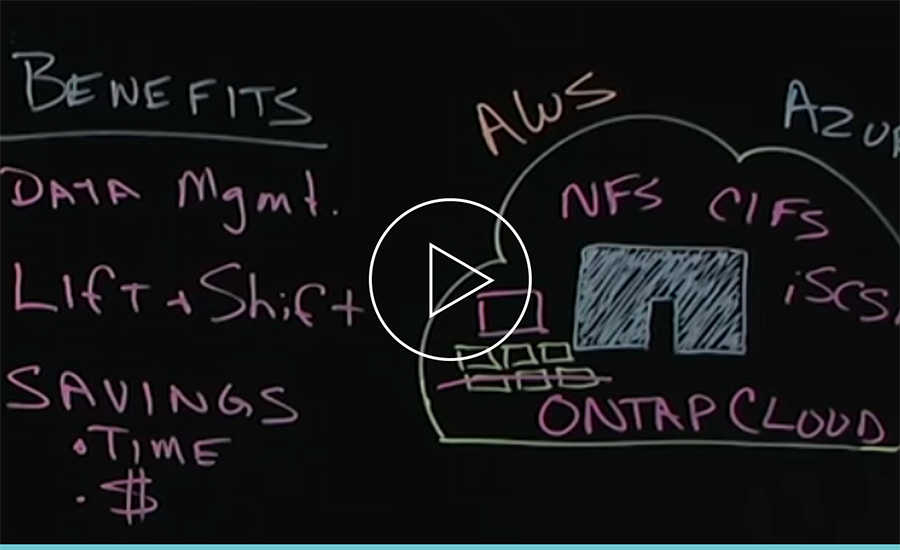 BENEFITS
DATA Mgmt.
LIFT + Shift
SAVINGS
• TIME
• $
AWS
NFS CIFS
ONTAP CLOUD